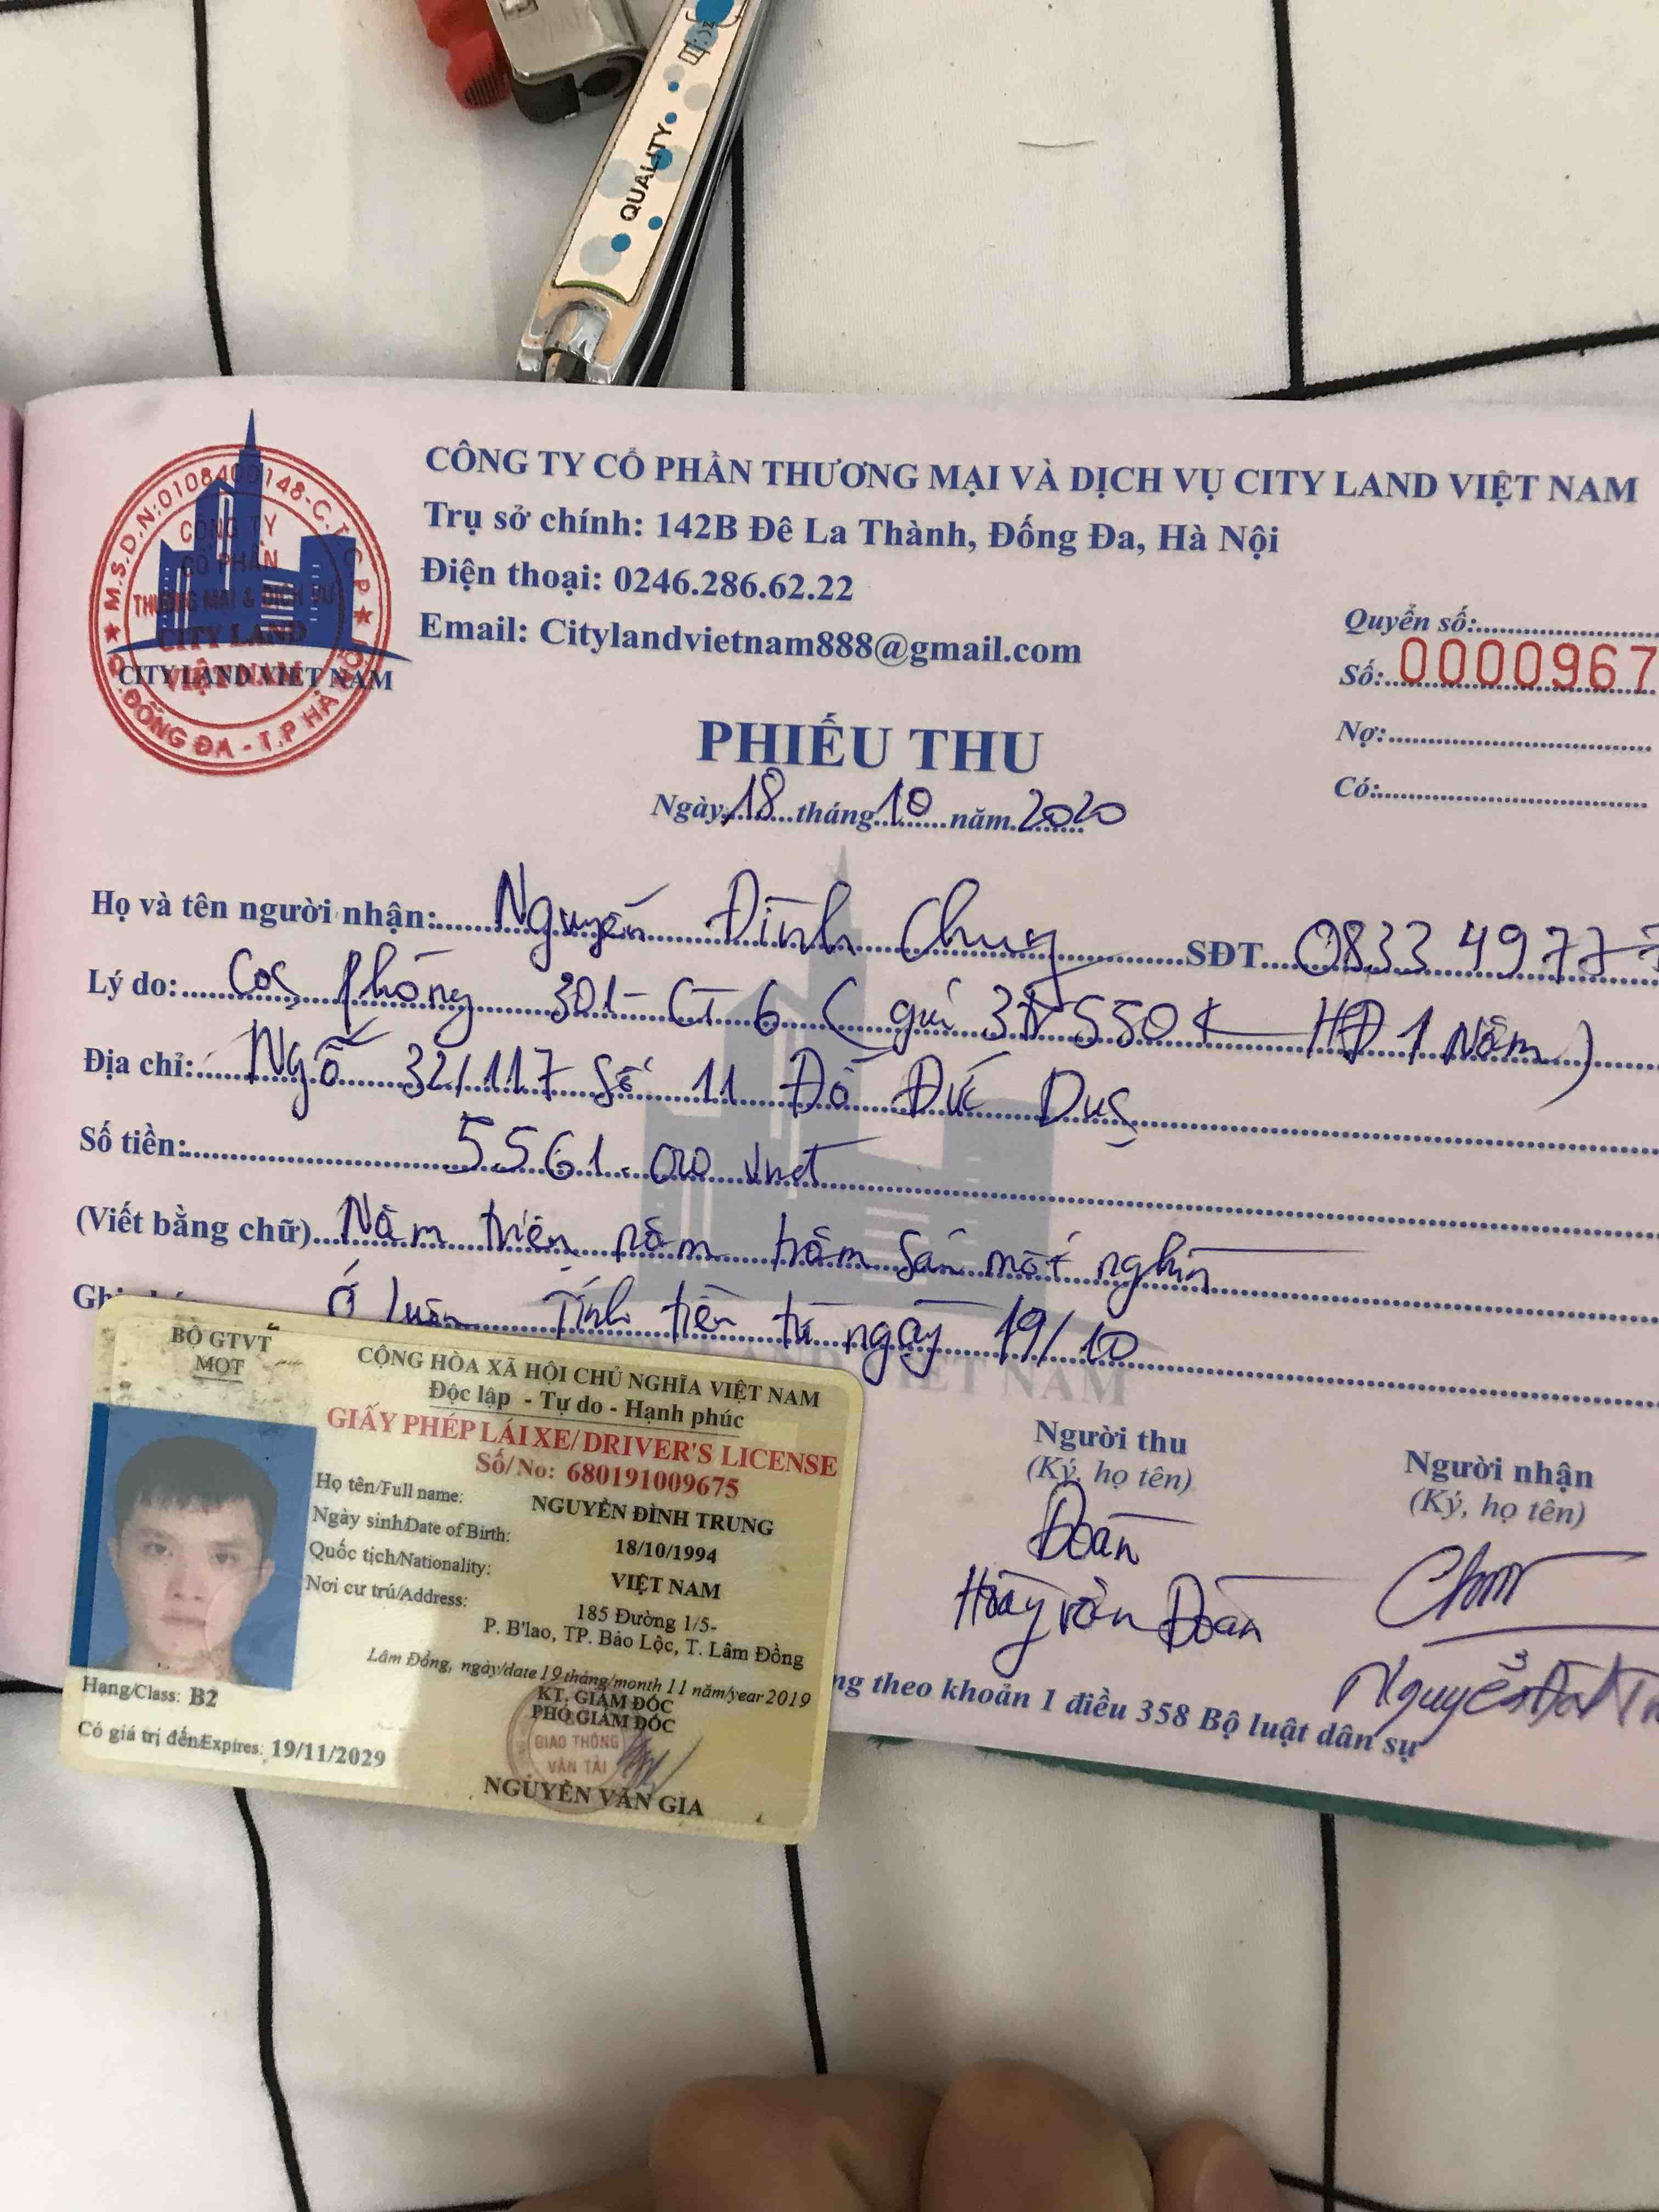 QUALITY
M.S.D.N:0108400148-C.T.C.P
CÔNG TY
CỔ PHẦN
THƯƠNG MẠI & DỊCH VỤ
CITY LAND
VIỆT NAM
Q.ĐỐNG ĐA - T.P HÀ NỘI
CITY LAND VIET NAM
CÔNG TY CỔ PHẦN THƯƠNG MẠI VÀ DỊCH VỤ CITY LAND VIỆT NAM
Trụ sở chính: 142B Đê La Thành, Đống Đa, Hà Nội
Điện thoại: 0246.286.62.22
Email: Citylandvietnam888@gmail.com
Quyển số:
Số: 0000967
Nợ:
Có:
PHIẾU THU
Ngày 18 tháng 10 năm 2020
Họ và tên người nhận: Nguyễn Đình Chung SĐT 0833 4977
Lý do: Cọc phòng 301 - CT 6 ( gửi 3tr 550k HĐ 1 Năm )
Địa chỉ: Ngõ 32/117 Số 11 Đỗ Đức Dục
Số tiền: 5561.000 vnđ
(Viết bằng chữ) Năm triệu năm trăm sáu mốt nghìn
Ở luôn Tính tiền từ ngày 19/10
VIET NAM
Người thu
(Ký, họ tên)
Đoàn
Hoàng văn Đoàn
Người nhận
(Ký, họ tên)
Nguyễn
theo khoản 1 điều 358 Bộ luật dân sự
BỘ GTVT
MOT
CỘNG HÒA XÃ HỘI CHỦ NGHĨA VIỆT NAM
Độc lập - Tự do - Hạnh phúc
GIẤY PHÉP LÁI XE/DRIVER'S LICENSE
Số/No: 680191009675
Họ tên/Full name: NGUYỄN ĐÌNH TRUNG
Ngày sinh/Date of Birth: 18/10/1994
Quốc tịch/Nationality: VIỆT NAM
Nơi cư trú/Address: 185 Đường 1/5-
P. B'lao, TP. Bảo Lộc, T. Lâm Đồng
Lâm Đồng, ngày/date 19 tháng/month 11 năm/year 2019
KT. GIÁM ĐỐC
PHÓ GIÁM ĐỐC
GIAO THÔNG
VẬN TẢI
NGUYỄN VĂN GIA
Hạng/Class: B2
Có giá trị đến/Expires: 19/11/2029